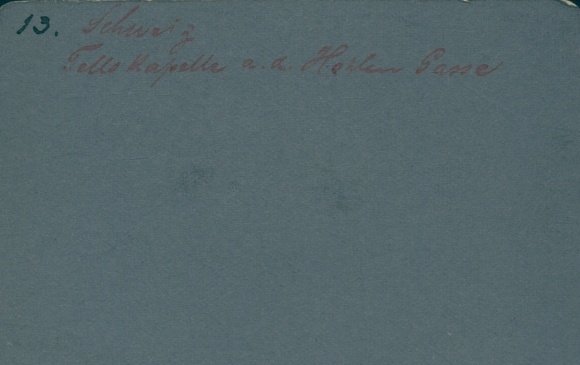 13. Schweiz
Tellskapelle a. d. Hohlen Gasse